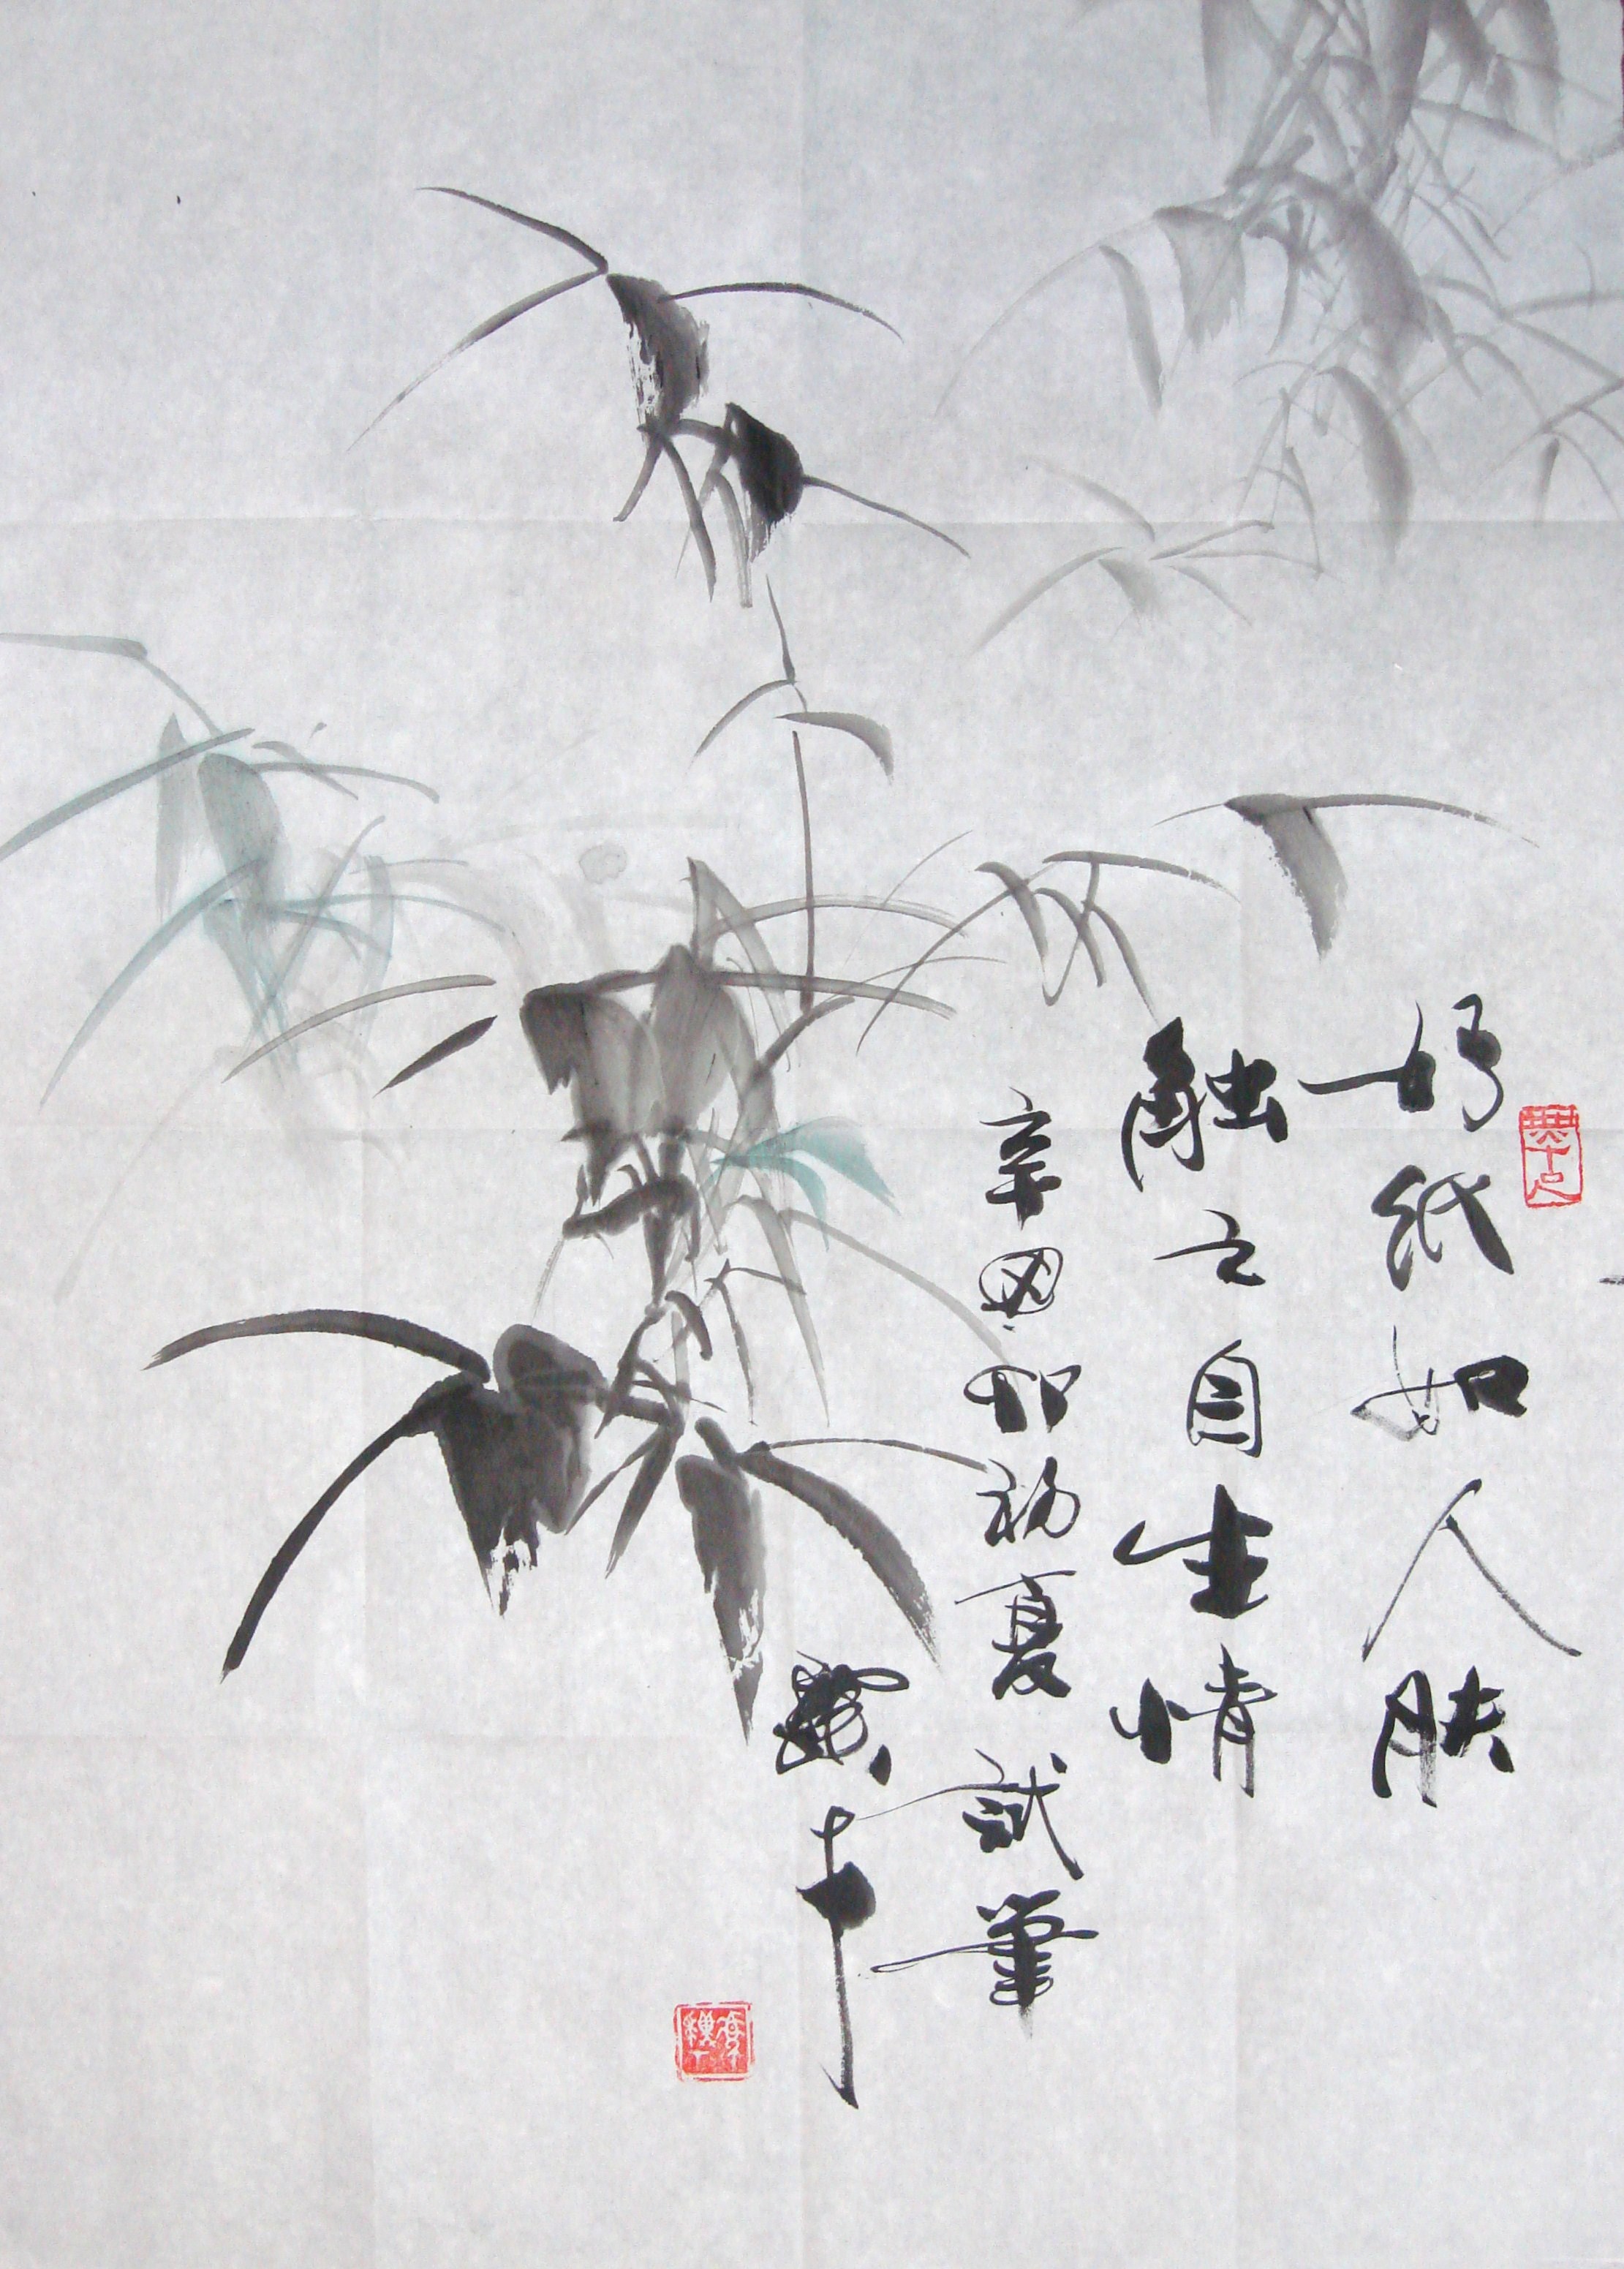 好纸如人肤
触之自生情
辛卯初夏試筆